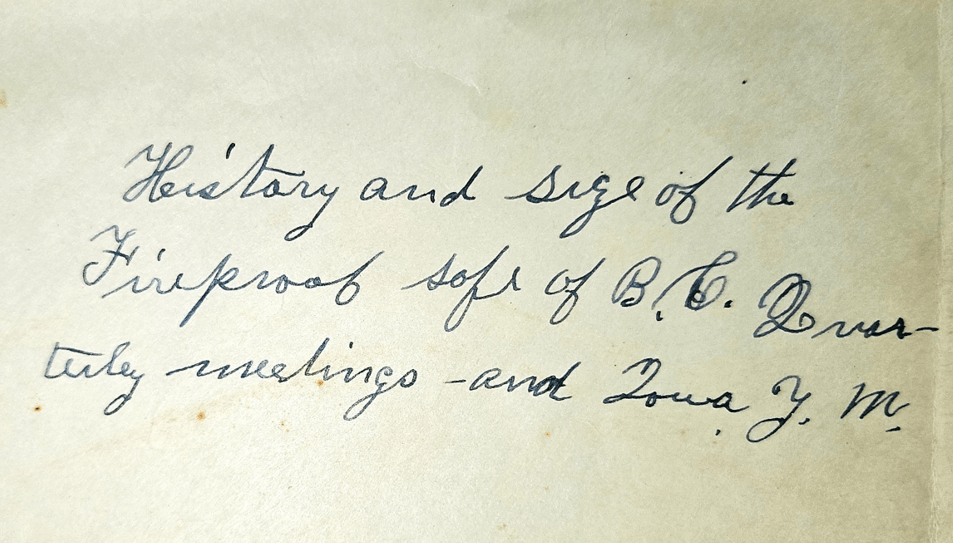 History and size of the
Fireproof safe of B. C. Quar-
terley meetings - and Iowa Y. M.